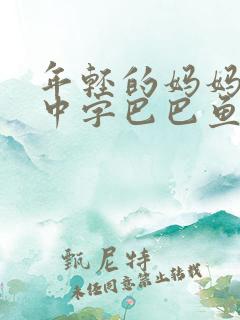 年轻的妈妈
中字巴巴鱼
甄尼特
未经同意禁止转载